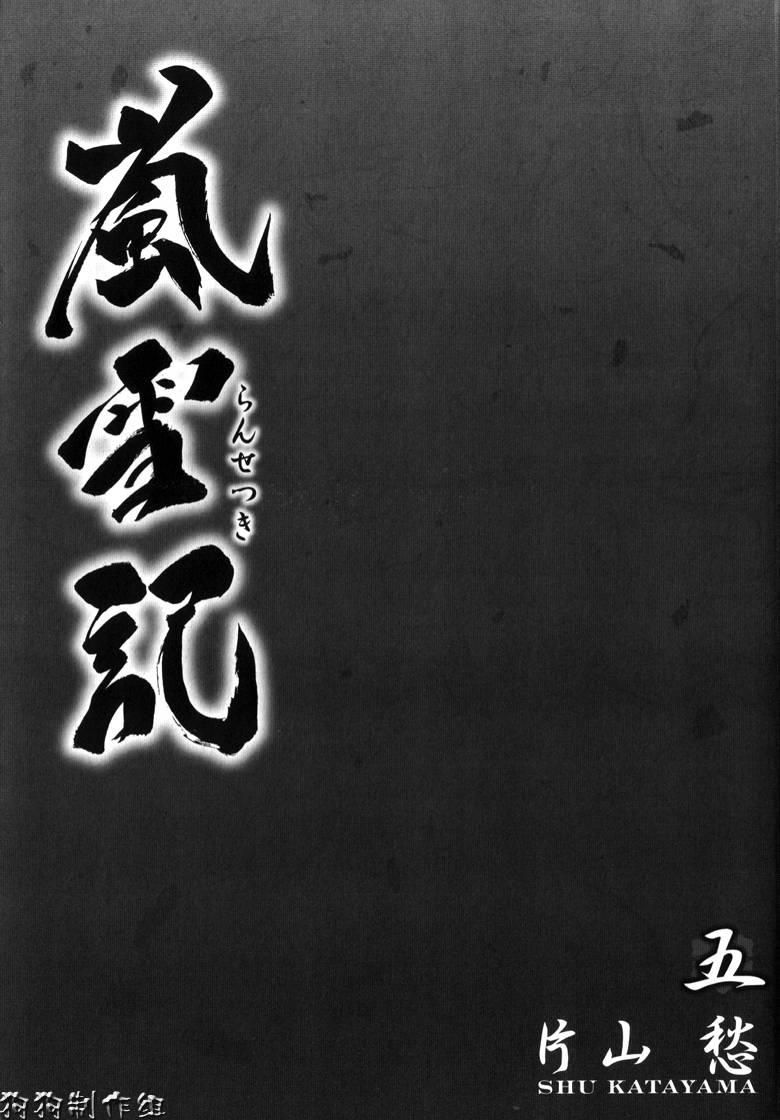 嵐雪記
らんせつき
五
片山 愁
SHU KATAYAMA
狗狗制作组